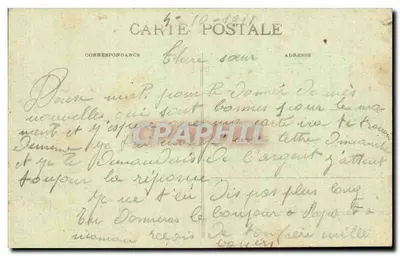 5-10-1911
CARTE POSTALE
CORRESPONDANCE ADRESSE
Chere sœur
Deux mots pour te donner de mes
nouvelles qui sont bonnes pour le mo
ment et j'espere que ma carte ira te trouver
de meme je lettre Dimanche
et je te Demandais De l'argent j'attent
toujour la réponse
Je ne t'en Dis pas plus long
Tu Donneras le bonjour a Papa et a
maman reçois De ton frère mille
baisers
CPAPHIL